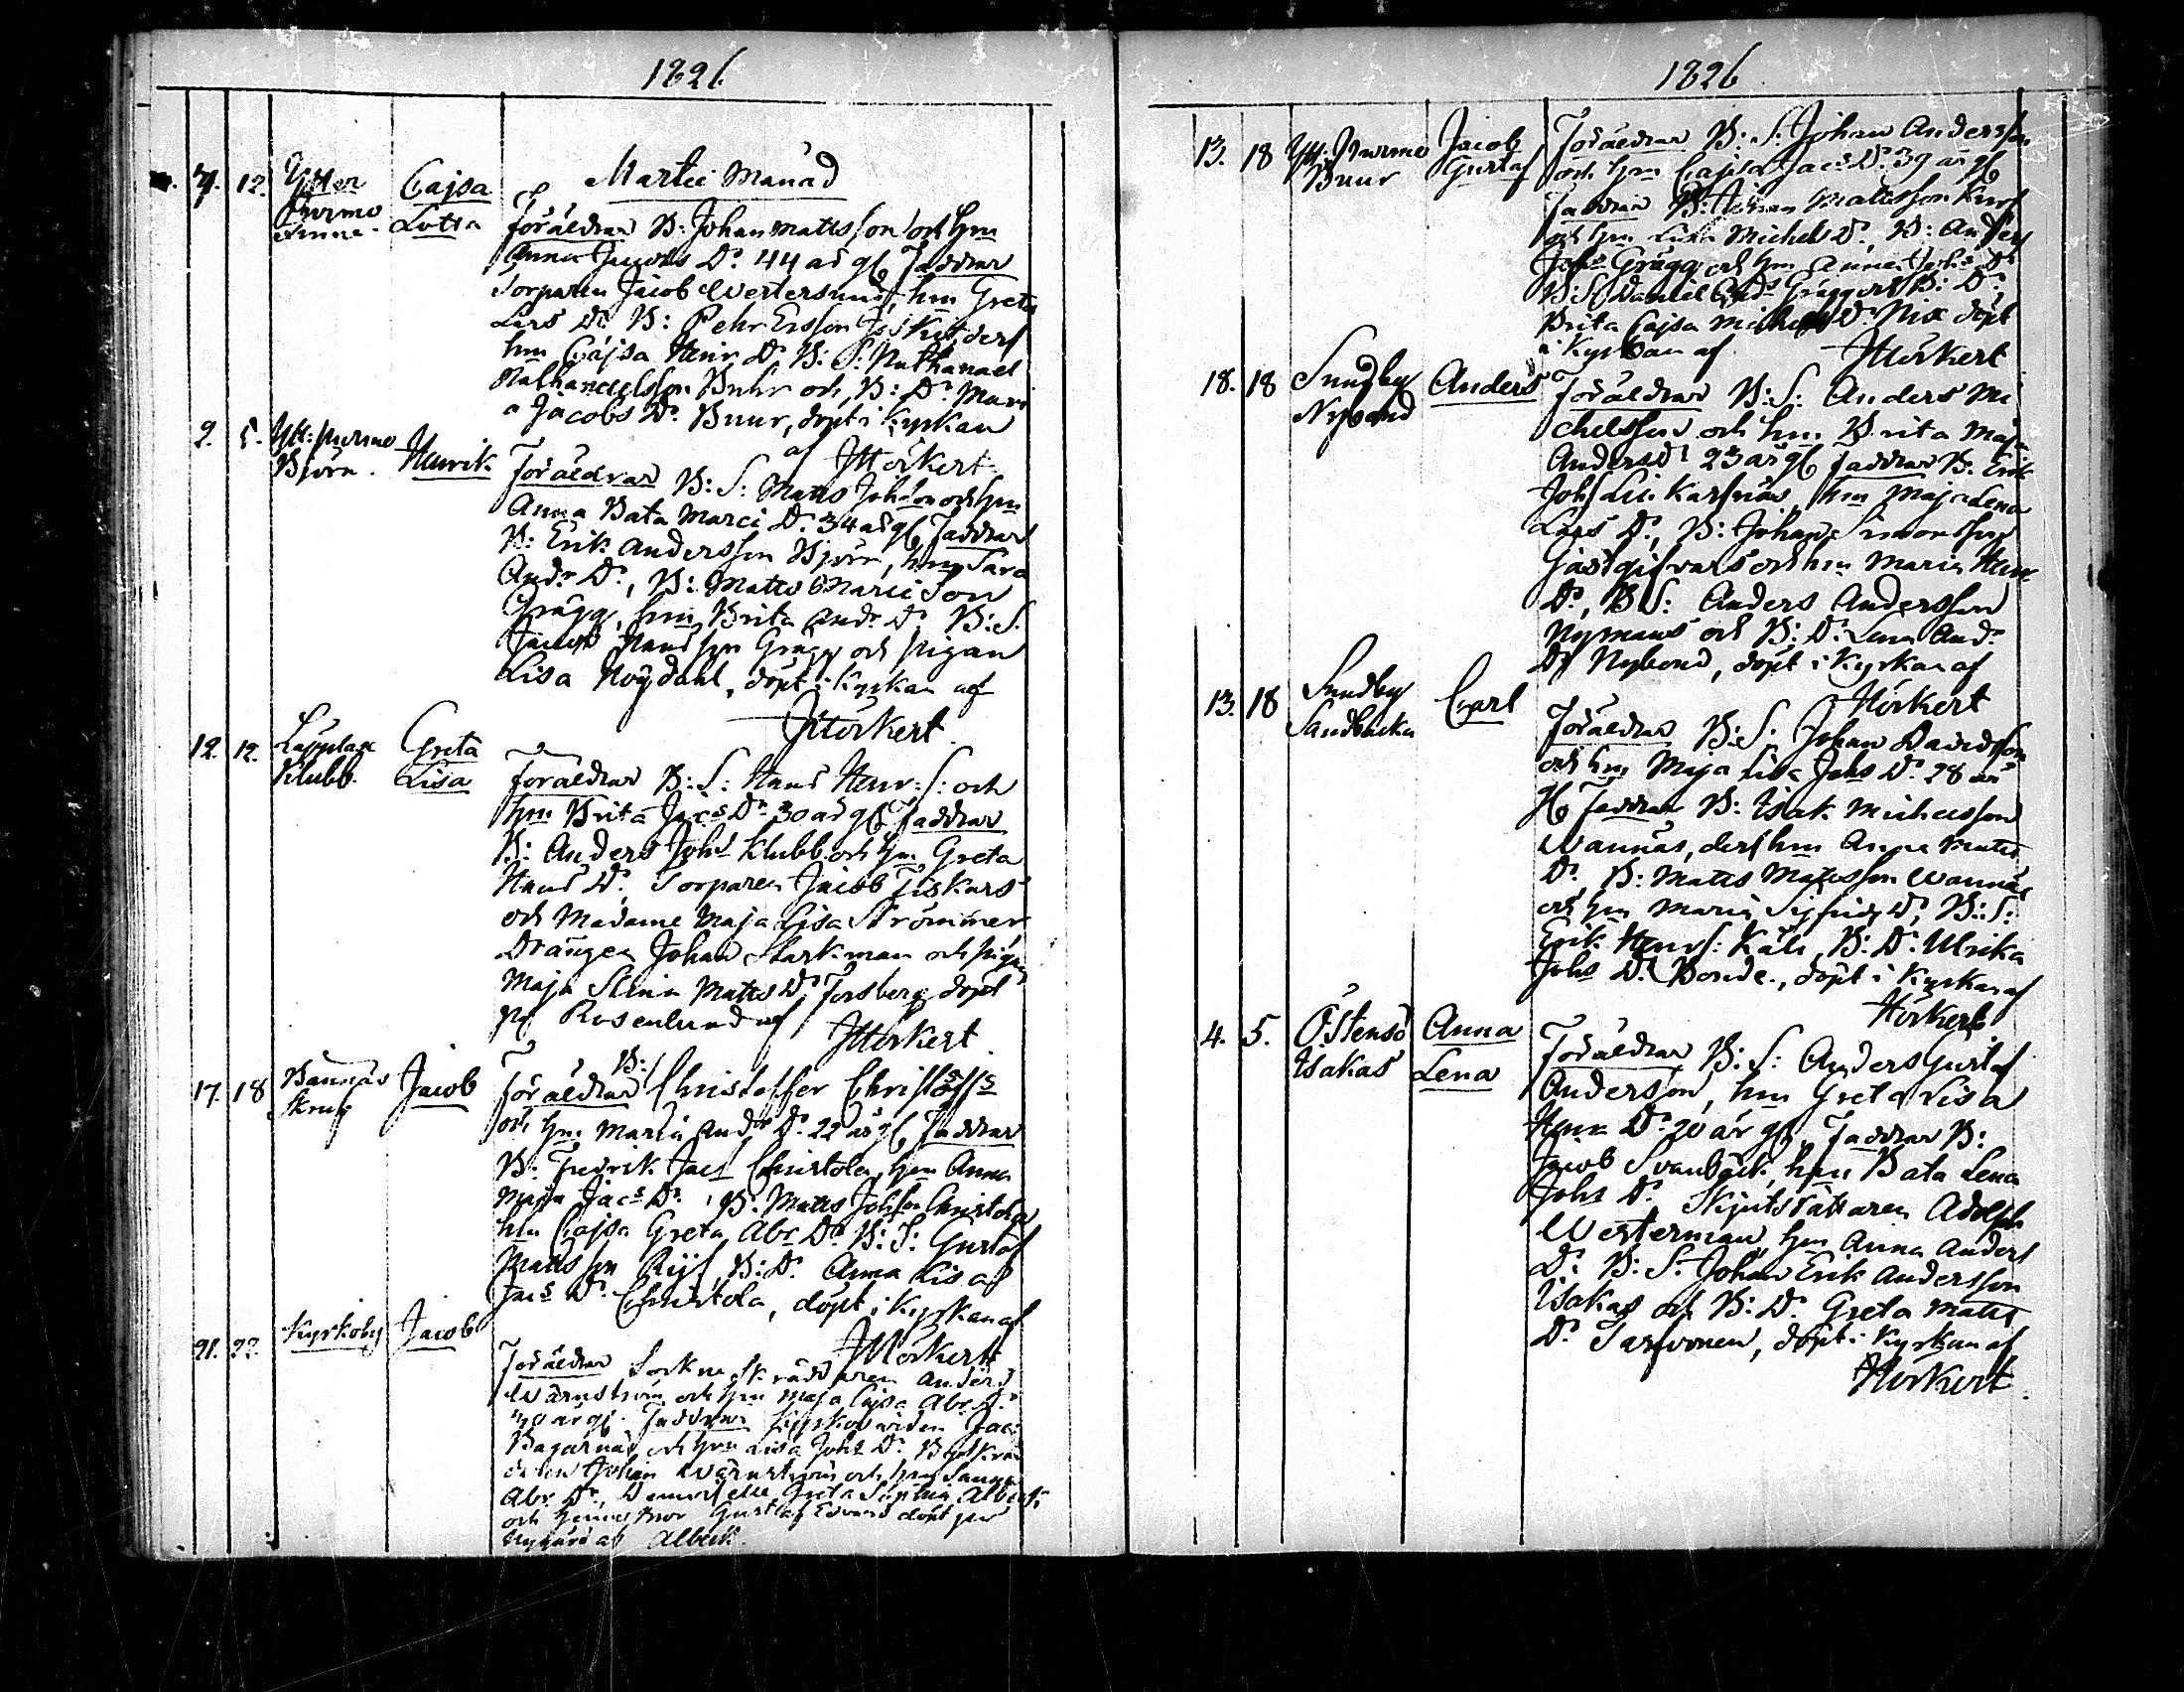 1826
Martii Månad
7. 12. Ytter Purmo Cajsa Lotta
Föräldrar B: Johan Mattsson och hm
Anna Jacobs Dr 44 år gl, Faddrar
Torparen Jacob Westersund, hm Greta
Lars Dr B: Pehr Ersson
hm Cajsa Henr Dr B: S: Nathanael
Nathanaelsson Buhr och B: Dr Mari
a Jacobs Dr Buur, döpt i Kyrkan
af JHörkert
2. 5. Ytt: purmo Björn. Henrik
Föräldrar B: S: Matts Johsson och hm
Anna Bata Marci Dr 34 år gl, Faddrar
B: Erik Andersson Björn, hm Sara
Andr Dr, B: Matts Marci Son
Grägg, hm Brita Andr Dr B: S.
Jacob Hansson Grägg och pigan
Lisa Högdahl, döpt i Kyrkan af
JHörkert.
12. 12. Lepplax Klubb. Greta Lisa
Föräldrar B: S: Hans Henr: S: och
hm Brita Jacs Dr 30 år gl Faddrar
B: Anders Johs Klubb och hm Greta
Hans Dr, Torparen Jacob Fiskars
och Madame Maja Lisa Strömmer
Drängen Johan Starkman och pigan
Maja Stina Matts Dr Forsberg döpt
på Rosenlund af JHörkert.
17. 18 Bännäs Skruf Jacob
Föräldrar B: Christoffer Christoffs
och hm Maria Andr Dr 22 år gl, Faddrar
B: Fredrik Jacs Christola, hm Anna
Maja Jacs Dr, B: Matts Johsson Christola
hm Cajsa Greta Abr Dr B: S: Gustaf
Mattsson Rijf, B: Dr Anna Lisa
Jacs Dr Christola, döpt i Kyrkan af
JHörkert
21. 22. Kyrkoby Jacob
Föräldrar Sockne Skräddaren Anders
Wärnström och hm Maja Cajsa Abr Dr
30 år gl. Faddrar Kyrkovärden Jac:
Bagarnäs och hm Lisa Johs Dr
Johan Wärnström och hm Sanna
Abr. Dr, Demoiselle Greta Sophia
och Gustaf Edvard döpt
af Albeck.
1826
13. 18 Ytt: Purmo Buur Jacob Gustaf
Föräldrar B: S: Johan Andersson
och hm Cajsa Jacs Dr 39 år gl
Faddrar B: Johan Mattsson
och hm Lisa Michels Dr, B: Anders
Johs Grägg och hm Anna Johs Dr
B: S: Daniel Ands Grägg och B: Dr
Brita Cajsa Michels Dr Nix döpt
i Kyrkan af JHörkert
18. 18 Sundby Nybond Anders
Föräldrar B: S: Anders Mi
chelsson och hm Brita Maja
Anders Dr 23 år gl Faddrar B: Erik
Johs Karfnäs, hm Maja Lena
Lars Dr, B: Johan Simonsson
Gästgifvars och hm Maria Henr
Dr, B S: Anders Andersson
Nymans och B: Dr Lena And:
Dr Nybond, döpt i Kyrkan af
Hörkert
13. 18 Sundby Sandbacka Carl
Föräldrar B: S: Johan Davidsson
och hm Maja Lisa Johs Dr 28 år
gl Faddrar B: Isak Michelsson
Wannäs, ders hm Anna Matts
Dr, B: Matts Mattsson Wannäs
och hm Maria Sigfrids Dr, B: S:
Erik Henrs: Käll, B: Dr Ulrika
Johs Dr Bonde., döpt i Kyrkan af
Hörkert
4. 5. Östensö Isakas Anna Lena
Föräldrar B: S: Anders Gustaf
Andersson, hm Greta Lisa
Henr Dr 20 år gl, Faddrar B:
Jacob Svanbäck, hm Bata Lena
Johs Dr Skjutsrättaren Adolph
Westerman, hm Anna Anders
Dr B: S: Johan Erik Andersson
Isakas och B: Dr Greta Matts
Dr Sarfvonen, döpt i Kyrkan af
Hörkert.